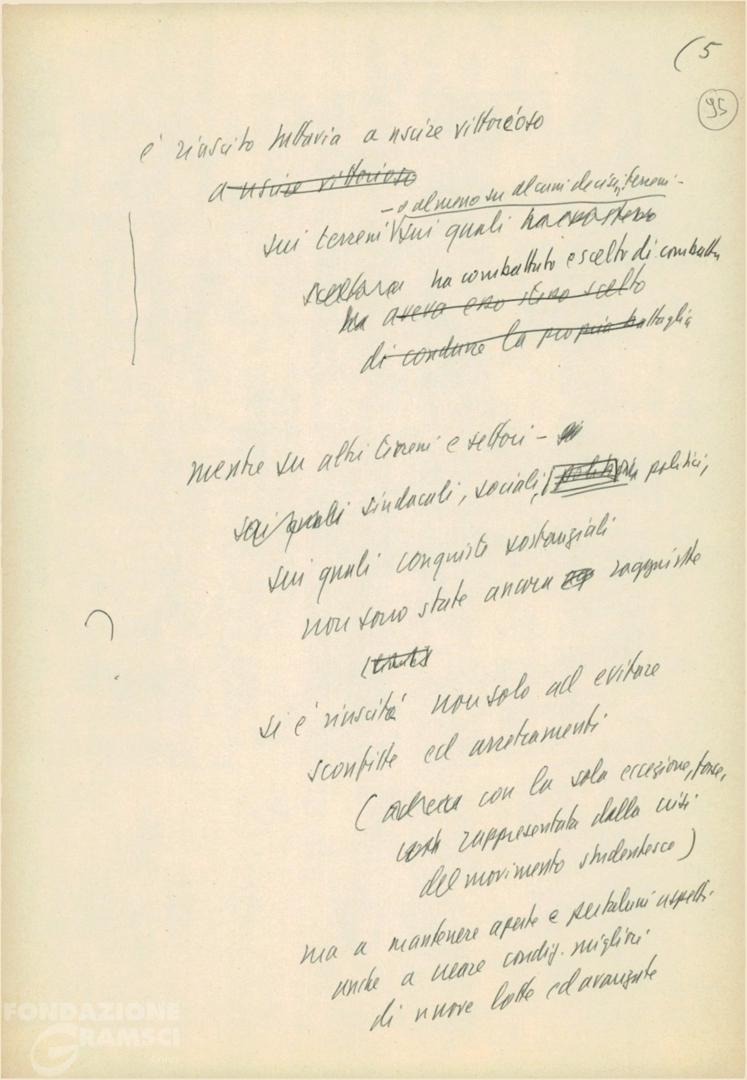 (5
95
è riuscito tuttavia a uscire vittorioso
a uscire vittorioso
– o almeno su alcuni decisivi terreni –
sui terreni sui quali
ha combattuto e scelto di combattere
ha aveva esso stesso scelto
di condurre la propria battaglia
mentre su altri terreni e settori –
sindacali, sociali, politici,
sui quali conquiste sostanziali
non sono state ancora raggiunte
si è riusciti non solo ad evitare
sconfitte ed arretramenti
( con la sola eccezione, forse,
rappresentata dalla crisi
del movimento studentesco)
ma a mantenere aperte e per taluni aspetti
anche a creare condiz. migliori
di nuove lotte ed avanzate
FONDAZIONE
GRAMSCI